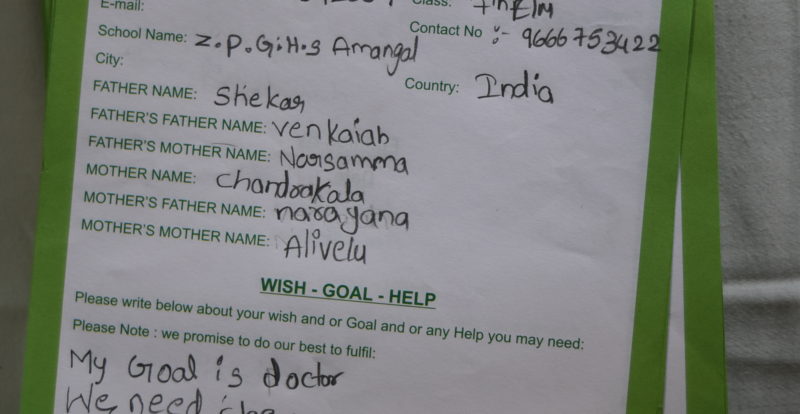 E-mail:
Class: 7th E/M
School Name: Z.P.G.H.S Amangal
Contact No :- 9666753422
City:
Country: India
FATHER NAME: Shekar
FATHER'S FATHER NAME: Venkaiah
FATHER'S MOTHER NAME: Narsamma
MOTHER NAME: Chandrakala
MOTHER'S FATHER NAME: narayana
MOTHER'S MOTHER NAME: Alivelu
WISH - GOAL - HELP
Please write below about your wish and or Goal and or any Help you may need:
Please Note : we promise to do our best to fulfil:
My Goal is doctor
We need